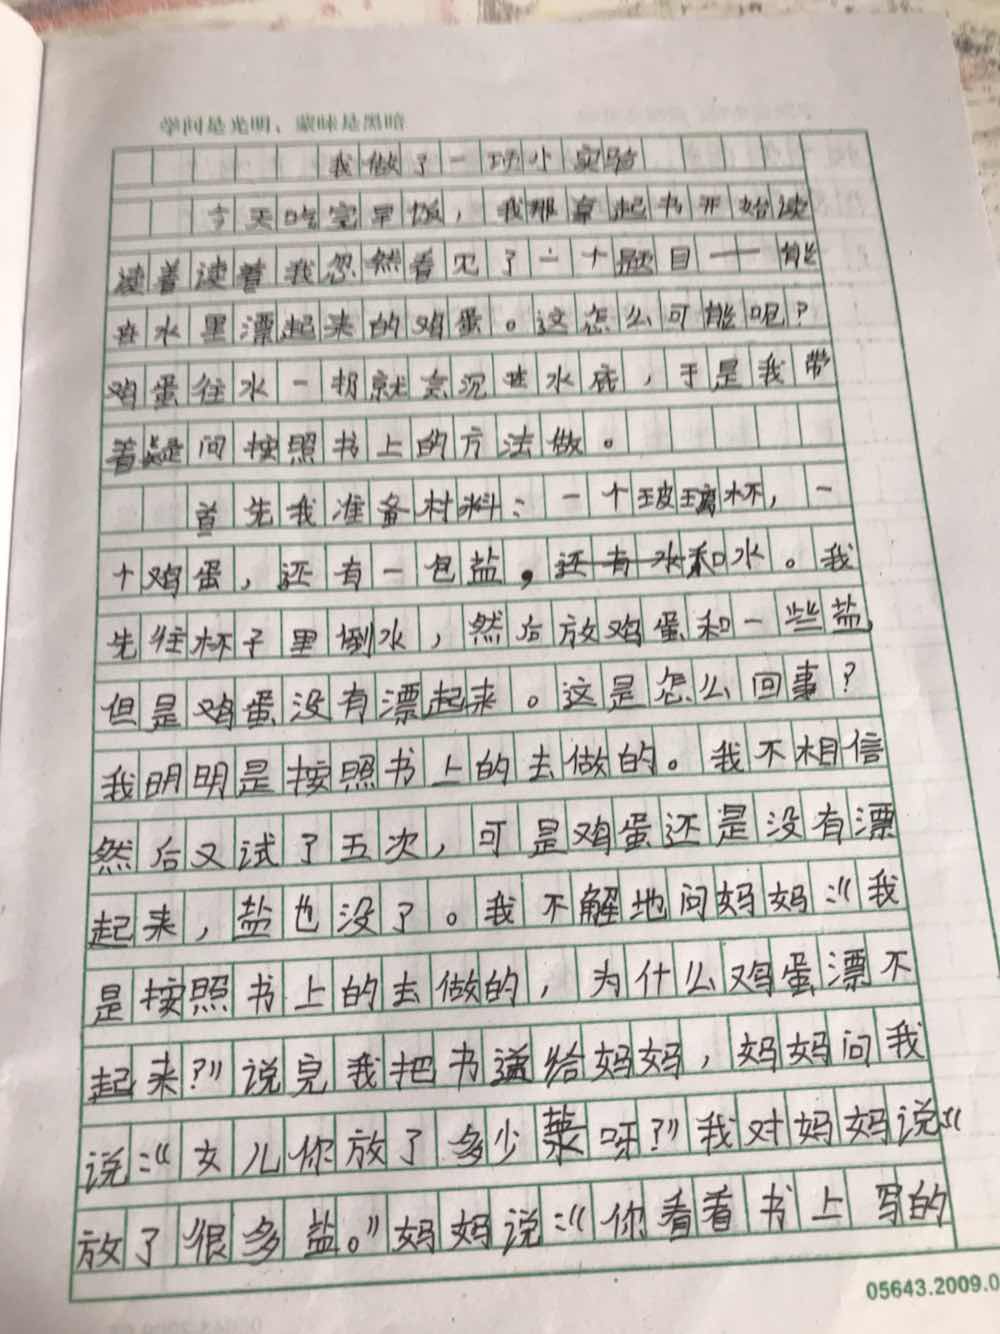 学问是光明、蒙昧是黑暗
我做了一项小实验
今天吃完早饭，我那拿起书开始读
读着读着我忽然看见了一个题目——能
在水里漂起来的鸡蛋。这怎么可能呢？
鸡蛋往水一扔就会沉进水底，于是我带
着疑问按照书上的方法做。
首先我准备材料：一个玻璃杯，一
个鸡蛋，还有一包盐，还有水和水。我
先往杯子里倒水，然后放鸡蛋和一些盐，
但是鸡蛋没有漂起来。这是怎么回事？
我明明是按照书上的去做的。我不相信
然后又试了五次，可是鸡蛋还是没有漂
起来，盐也没了。我不解地问妈妈：“我
是按照书上的去做的，为什么鸡蛋漂不
起来？”说完我把书递给妈妈，妈妈问我
说：“女儿你放了多少 呀？”我对妈妈说“
放了很多盐。”妈妈说：“你看看书上写的
05643.2009.0